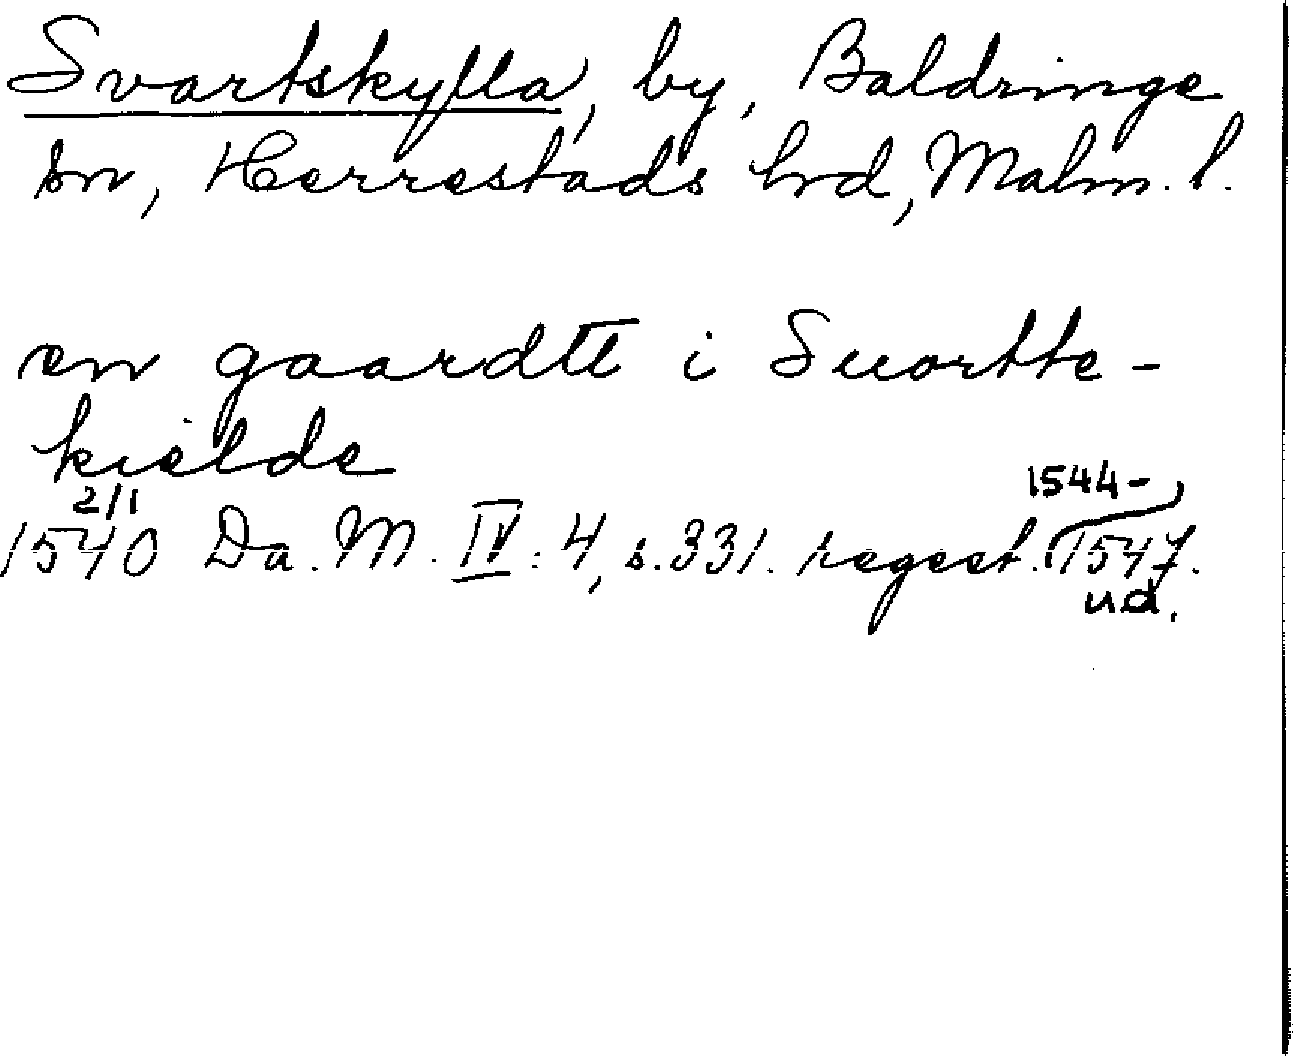 Svartskylla, by, Baldringe
sn, Herrestads hrd, Malm. l.
en gaardtt i Suortte-
kielde
2/1
1544-
1540 Da. M. IV: 4, s. 331. regest. 1547.
ud.